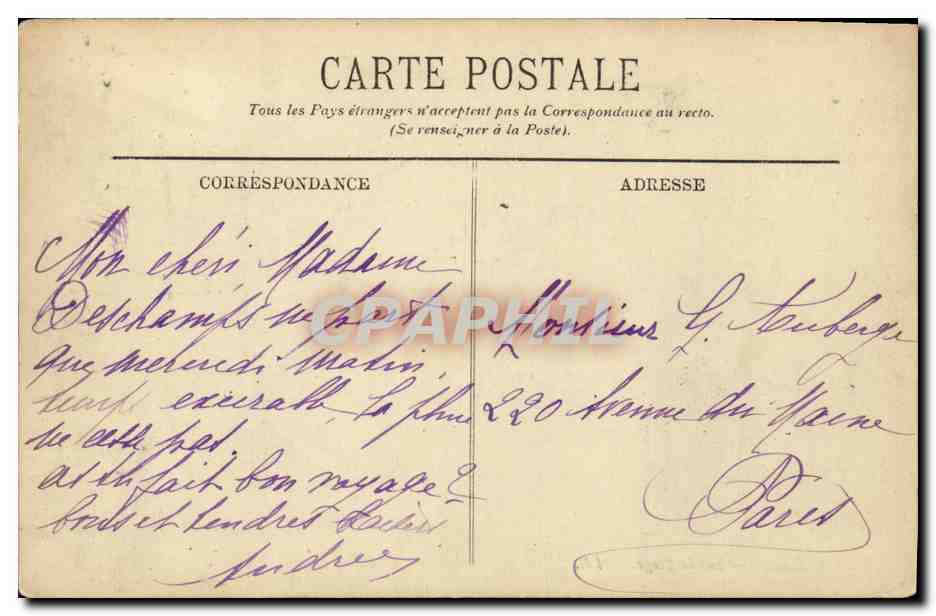 CARTE POSTALE
Tous les Pays étrangers n'acceptent pas la Correspondance au recto.
(Se renseigner à la Poste).
CORRESPONDANCE
ADRESSE
Mon chéri Madame
Deschamps ne part
que mercredi matin,
temps exécrable, la pluie
ne cesse pas.
as tu fait bon voyage?
bons et tendres baisers
Andrée
Monsieur G. Auberge
220 Avenue du Maine
Paris
CPAPHIL